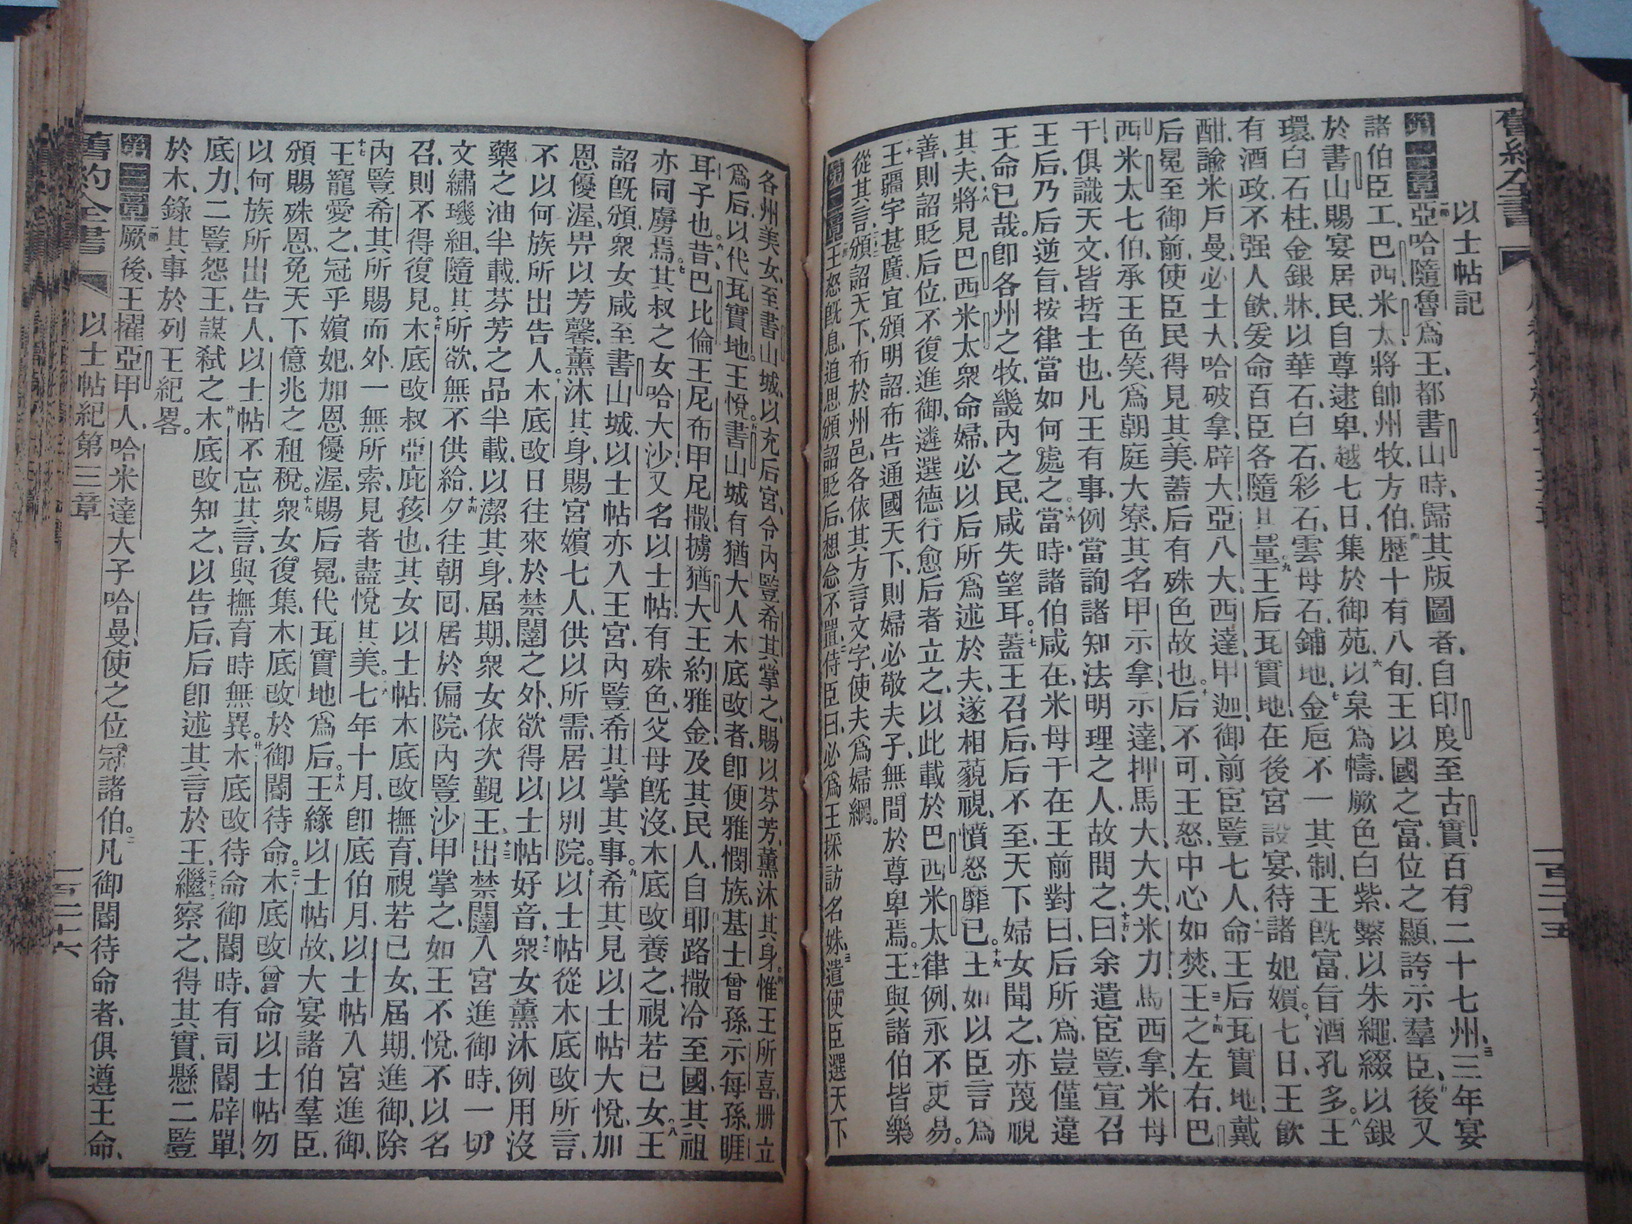 舊約全書
以士帖記
亞哈隨魯爲王、都書山時、歸其版圖者、自印度至古實、百有二十七州、三年宴
諸伯臣工、巴西米太將帥州牧方伯、歷十有八旬、王以國之富、位之顯、誇示羣臣、後又
於書山賜宴、居民自尊逮卑、越七日、集於御苑、以枲爲幬、厥色白紫、繫以朱繩、綴以銀
環、白石柱、金銀牀、以華石白石彩石雲母石鋪地、金卮不一其制、王旣富、旨酒孔多、王
有酒政、不强人飮、爰命百臣、各隨其量、王后瓦實地在後宮設宴、待諸妃嬪、七日王飮
酣、諭米戶曼、必士大、哈破拿、辟大、亞八大、西達、甲迦、御前宦豎七人、命王后瓦實地戴
后冕至御前、使臣民得見其美、蓋后有姝色故也、后不可、王怒中心如焚、王之左右、巴
西米太七伯、承王色笑、爲朝庭大寮、其名甲示拿、示達、押馬大、大失、米力、馬西拿、米母
干、俱識天文、皆哲士也、凡王有事、例當詢諸知法明理之人、故問之曰、余遣宦豎、宣召
王后、乃后逆旨、按律當如何處之、當時諸伯咸在、米母干在王前對曰、后所爲豈僅違
王命已哉、卽各州之牧、畿內之民、咸失望耳、蓋王召后、后不至、天下婦女聞之、亦蔑視
其夫、將見巴西米太衆命婦、必以后所爲述於夫、遂相藐視、憤怒靡已、王如以臣言爲
善、則詔貶后位、不復進御、遴選德行愈后者立之、以此載於巴西米太律例、永不更易、
王疆宇甚廣、宜頒明詔、布告通國天下、則婦必敬夫子、無間於尊卑焉、王與諸伯皆樂
從其言、頒詔天下、布於州邑、各依其方言文字、使夫爲婦綱。
王怒旣息、追思頒詔貶后、想念不置、侍臣曰、必爲王採訪名姝、遣使臣選天下
一百二十五
各州美女、至書山城、以充后宮、令內豎希其掌之、賜以芬芳、薰沐其身、惟王所喜、册立
爲后、以代瓦實地、王悅、書山城有猶大人木底改者、卽便雅憫族、基士曾孫、示每孫、睚
耳子也、昔巴比倫王尼布甲尼撒、擄猶大王約雅金、及其民人、自耶路撒冷至國、其祖
亦同虜焉、其叔之女哈大沙、又名以士帖、有姝色、父母旣沒、木底改養之、視若已女、王
詔旣頒、衆女咸至書山城、以士帖亦入王宮、內豎希其掌其事、希其見以士帖大悅、加
恩優渥、畀以芳馨、薰沐其身、賜宮嬪七人、供以所需、居以別院、以士帖從木底改所言、
不以何族所出告人、木底改日往來於禁闥之外、欲得以士帖好音、衆女薰沐例用沒
藥之油半載、芬芳之品半載、以潔其身、屆期衆女依次覲王、出禁闥、入宮進御時、一切
文繡璣組、隨其所欲、無不供給、夕往朝囘、居於偏院、內豎沙甲掌之、如王不悅、不以名
召、則不得復見、木底改叔亞庇孩也、其女以士帖、木底改撫育、視若已女、屆期進御、除
內豎希其所賜而外、一無所索、見者盡悅其美、七年十月、卽底伯月、以士帖入宮進御、
王寵愛之、冠乎嬪妃、加恩優渥、賜后冕、代瓦實地爲后、王緣以士帖故、大宴諸伯羣臣、
頒賜殊恩、免天下億兆之租稅、衆女復集、木底改於御闥待命、木底改曾命以士帖、勿
以何族所出告人、以士帖不忘其言、與撫育時無異、木底改待命御闥時、有司閽辟單、
底力、二豎怨王、謀弒之、木底改知之、以告后、后卽述其言於王、繼察之、得其實、懸二豎
於木、錄其事於列王紀畧。
厥後、王擢亞甲人哈米達大子哈曼、使之位冠諸伯、凡御閽待命者、俱遵王命、
舊約全書
以士帖紀第三章
一百二十六